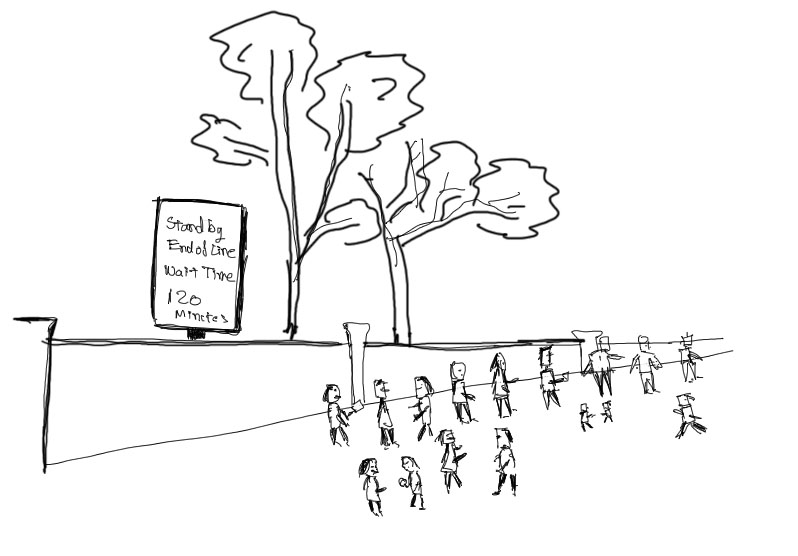 Stand By
End of Line
Wait Time
120
Minutes